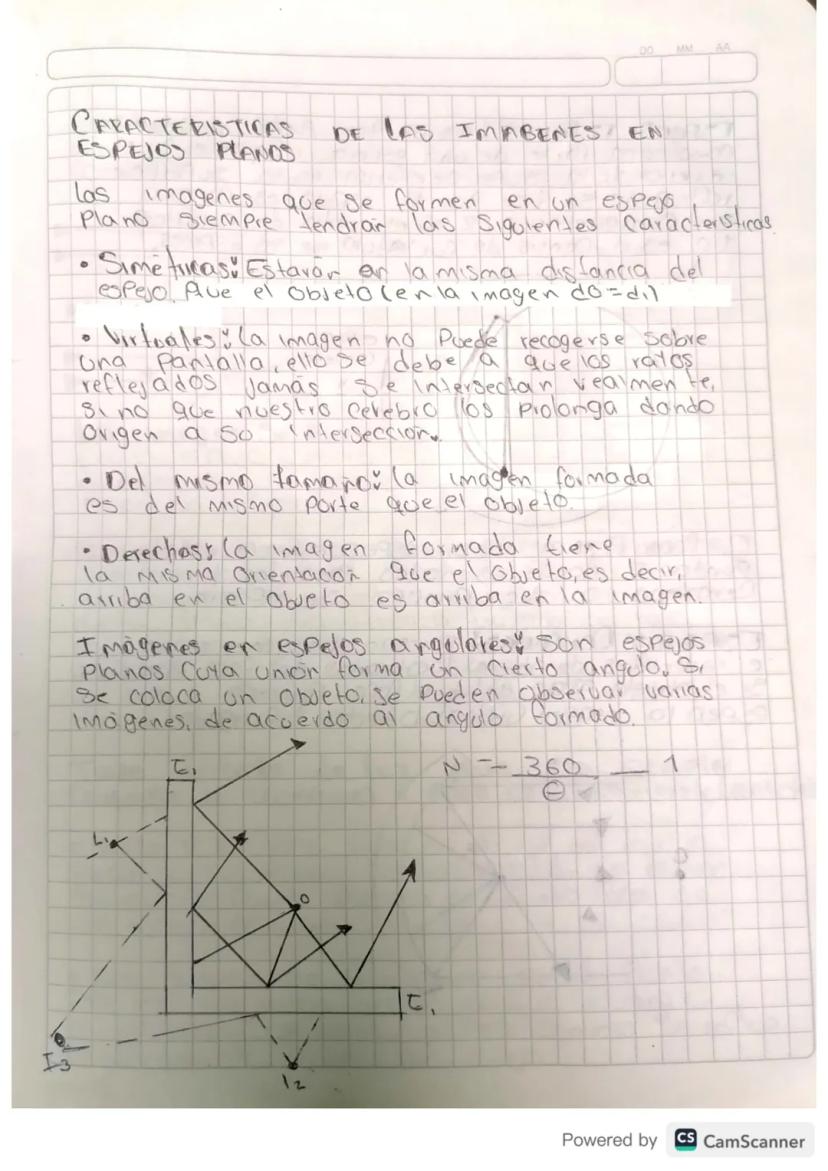 DD MM AA
CARACTERISTICAS DE LAS IMAGENES EN
ESPEJOS PLANOS
Las imagenes que se formen en un espejo
Plano siempre tendran las siguientes caracteristicas
• Simétricas: Estarán en la misma distancia del
espejo. Que el objeto (en la imagen do=di)
• Virtuales: La imagen no Puede recogerse sobre
una Pantalla, ello se debe a que los rayos
reflejados Jamás se intersectan realmente,
sino que nuestro cerebro los prolonga dando
origen a su intersección.
• Del mismo tamaño: La imagen formada
es del mismo porte que el objeto.
• Derechas: La imagen formada tiene
la misma orientación que el objeto, es decir,
arriba en el objeto es arriba en la imagen.
Imágenes en espejos angulares: Son espejos
planos cuya unión forma un cierto angulo. Si
se coloca un objeto, se pueden observar varias
imágenes, de acuerdo al angulo formado.
E1
N = 360 — 1
Θ
L1
O
E1
I3
I2
Powered by CS CamScanner